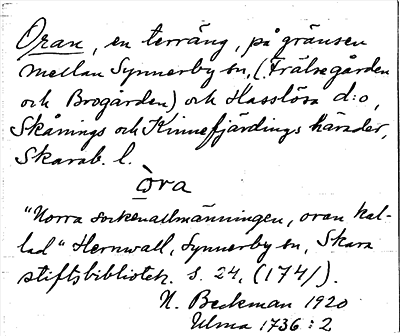 Oran, en terräng, på gränsen
mellan Synnerby sn, (Frälsegården
och Brogården) och Hasslösa d:o,
Skånings och Kinnefjärdings härader,
Skarab. l.
òra
"Norra sockenallmänningen, oran kal-
lad" Hernwall, Synnerby sn, Skara
stiftsbibliotek. s. 24, (1741).
N. Beckman 1920
Ulma 1736:2